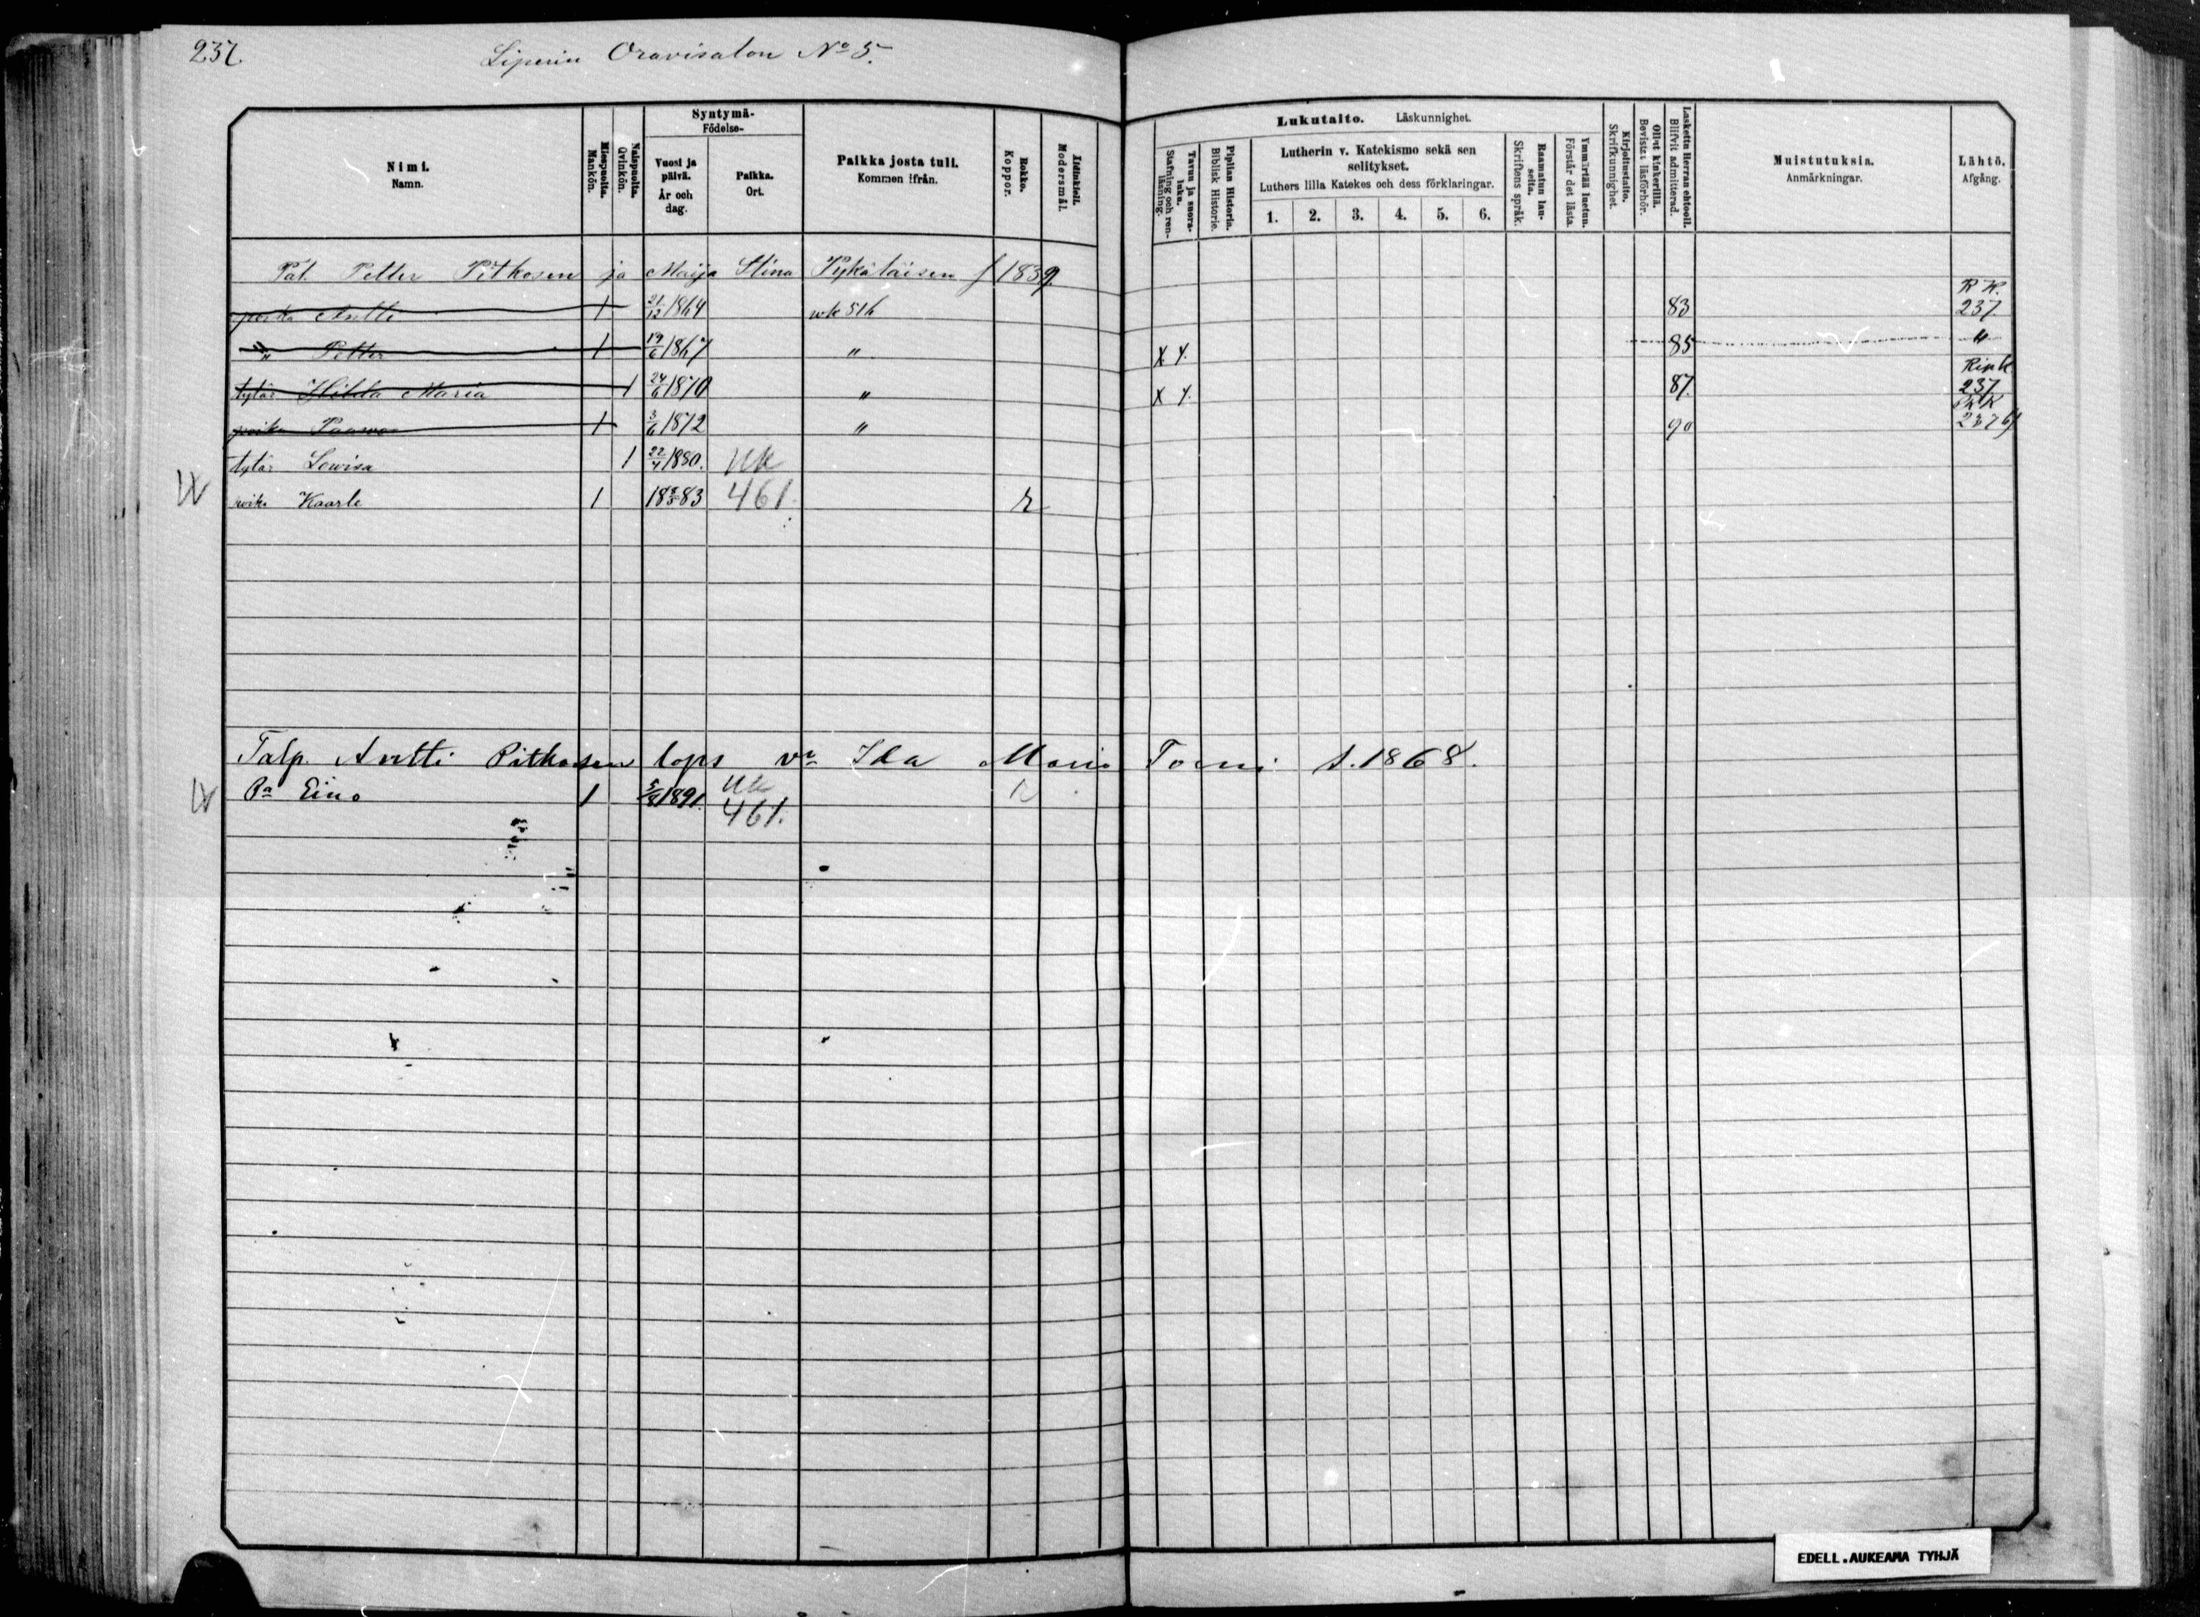 237.
Liperin Oravisalon No 5.
Nimi. Namn.
Miespuolta. Mankön.
Naispuolta. Qvinkön.
Syntymä- Födelse-
Vuosi ja päivä. År och dag.
Paikka. Ort.
Paikka josta tuli. Kommen ifrån.
Rokko. Koppor.
Äidinkieli. Modersmål.
Lukutaito. Läskunnighet.
Tavuu ja suora-luku. Stafning och ren-läsning.
Piplian Historia. Biblisk Historie.
Lutherin v. Katekismo sekä sen selitykset.
Luthers lilla Katekes och dess förklaringar.
1. 2. 3. 4. 5. 6.
Raamatun lau-seita. Skriftens språk.
Ymmärtää luetun. Förstår det lästa.
Kirjoitustaito. Skrifkunnighet.
Ollut kinkerillä. Bevistat läsförhör.
Laskettu Herran ehtoolle. Blifvit admitterad.
Muistutuksia. Anmärkningar.
Lähtö. Afgång.
Tal. Petter Pitkosen ja Maija Stina Pykäläisen f 1839.
poika Antti 1 21/12 1864 wk 516 83 R K. 237.
" Petter 1 19/6 1867 " X Y. 85 "
tytär Hilda Maria 1 24/6 1870 " X Y. 87. Ripk 237
poika Paawo 1 3/6 1872 " 90 RK 237 b)
tytär Lowisa 1 22/4 1880. UK
poika Kaarle 1 18 83 461. r
Talp. Antti Pitkosen laps va Ida Maria Torni s. 1868.
Pa Eino 1 5/8 1891. UK r
461.
EDELL.AUKEAMA TYHJÄ